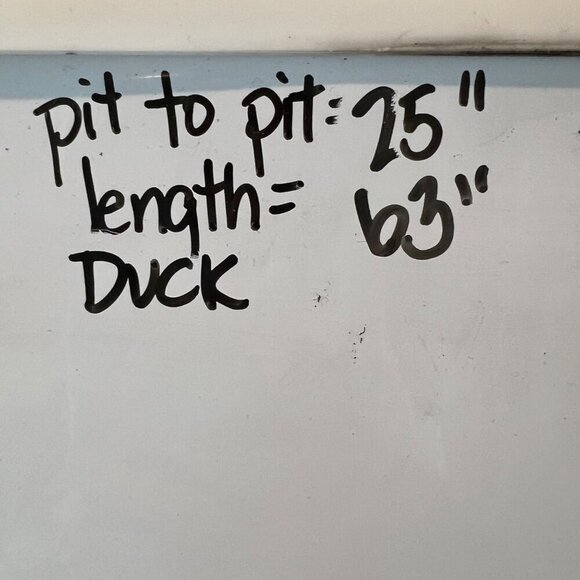 pit to pit: 25"
length= 63"
DUCK